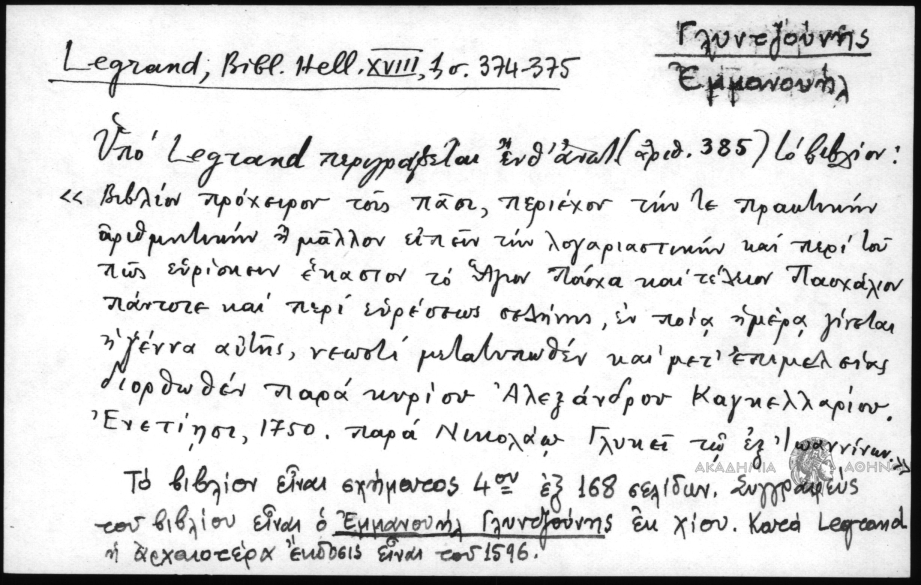 Γλυντζούνης
Ἐμμανουήλ
Legrand, Bibl. Hell. XVIII, 1 σ. 374-375
Ὑπό Legrand περιγράφεται ἔνθ' ἀνωτ. (ἀριθ. 385) τό βιβλίον:
« Βιβλίον πρόχειρον τοῖς πᾶσι, περιέχον τήν τε πρακτικήν
ἀριθμητικήν ἤ μᾶλλον εἰπεῖν τήν λογαριαστικήν καί περί τοῦ
πῶς εὑρίσκειν ἕκαστον τό Ἅγιον Πάσχα καί τέλειον Πασχάλιον
πάντοτε καί περί εὑρέσεως σελήνης, ἐν ποίᾳ ἡμέρᾳ γίνεται
ἡ γέννα αὐτῆς, νεωστί μετατυπωθέν καί μετ' ἐπιμελείας
διορθωθέν παρά κυρίου Ἀλεξάνδρου Καγκελλαρίου.
Ἐνετίησι, 1750. παρά Νικολάῳ Γλυκεῖ τῷ ἐξ Ἰωαννίνων »
ΑΚΑΔΗΜΙΑ ΑΘΗΝΩΝ
Τό βιβλίον εἶναι σχήματος 4ον ἐξ 168 σελίδων. Συγγραφεύς
τοῦ βιβλίου εἶναι ὁ Ἐμμανουήλ Γλυντζούνης ἐκ Χίου. Κατά Legrand
ἡ ἀρχαιοτέρα ἔκδοσις εἶναι τοῦ 1596.